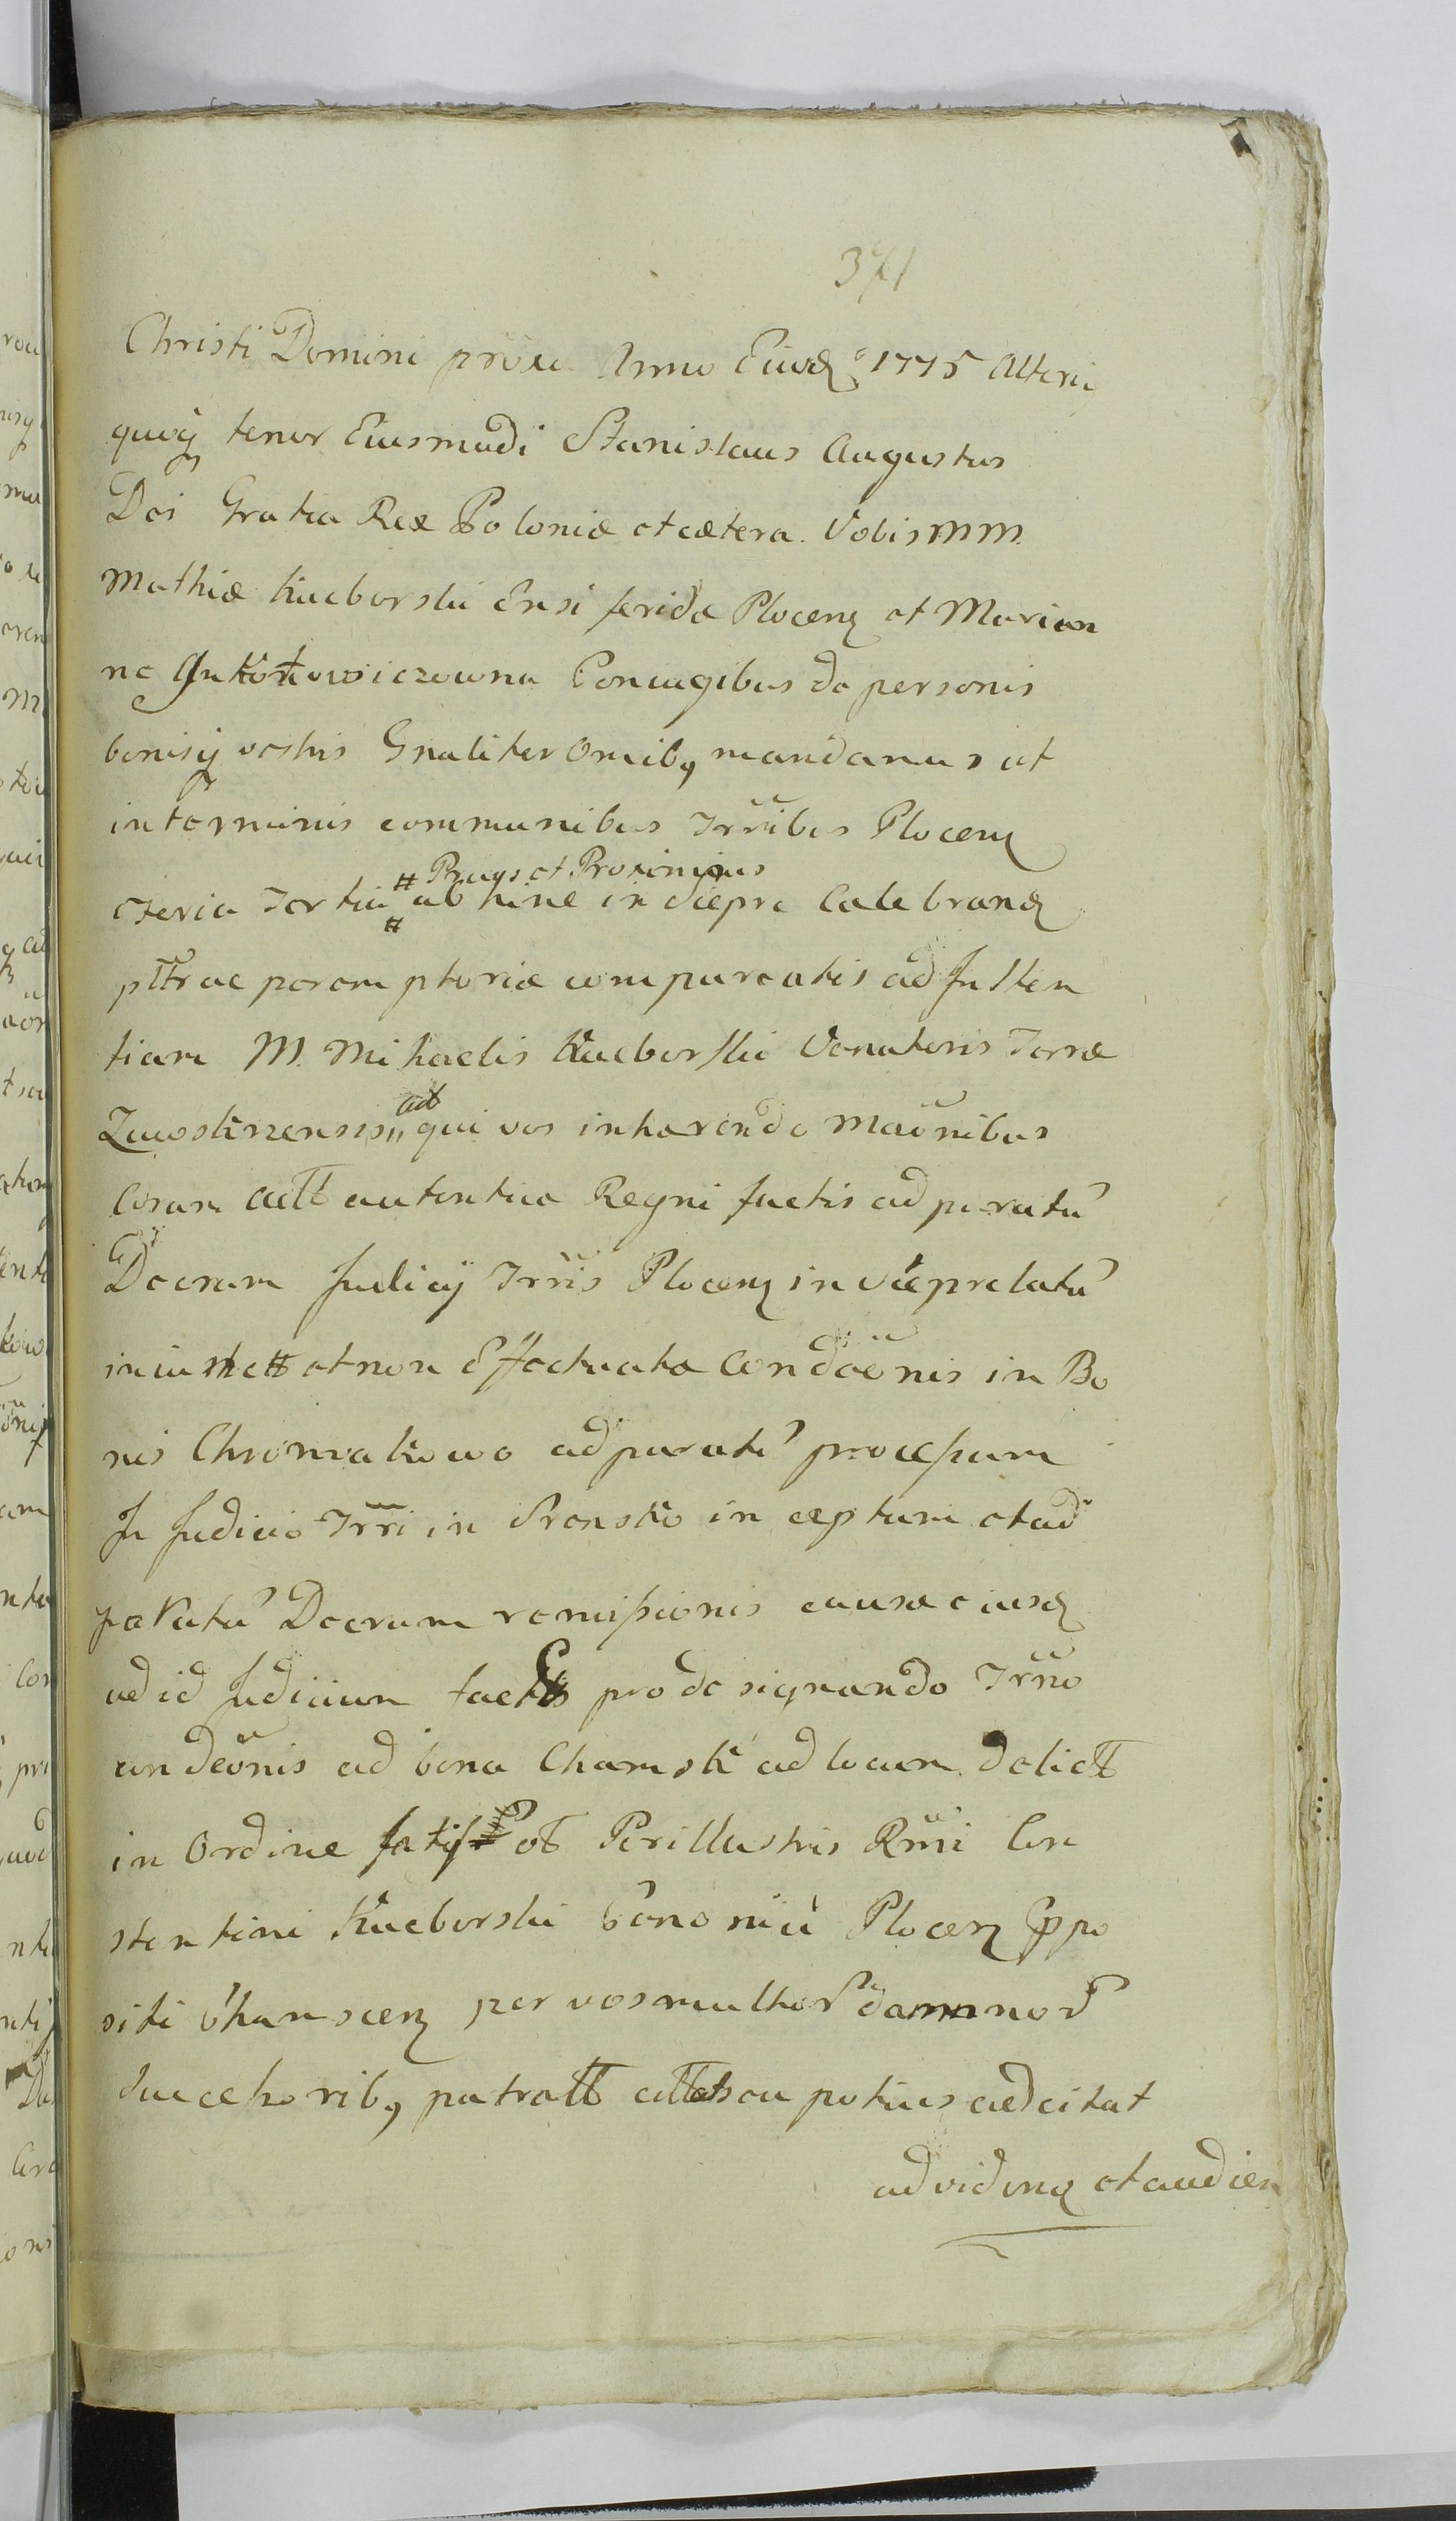 371
Christi Domini proxe Anno Eiusd 1775 Alteri
quoq tenor Eiusmodi Stanislaus Augustus
Dei Gratia Rex Poloniæ et cætera. Vobis MM.
Mathiæ Kuczborski Ensiferidæ Plocen et Marian
ne Conjugibus de personis
bonisq vestris Gnaliter Omibq mandamus ut
in terminis communibus Trribus Plocen
# Pruys et Proximius
Feria Tertia # ab hinc in Sierpc Celebrand
pttrae peremptoriæ compareatis ad Insten
tiam M. Michaelis Kuczborski Venatoris Terræ
Zawskrzensis,, ad
qui vos inhærendo Maönibus
Coram Actt autentica Regni factis ad paratū
Decretum Judicij Trris Plocen in Sierpc latū
iniustett et non Effectuatæ Condöenis in Bo
nis Chromakowo ad paratū processum
In Judicio Trri in Srensko inceptum et ad
paratū Decretum remissionis causæ eiusd
ad id Judicium factt pro designando Trrno
condeönis ad bona Chamsk ad locum delictt
in Ordine satisf ob Perillustris Rmi Con
stantini Kuczborski Canonici Plocen Præpo
siti Chamscen per vos multor damnor
Successoribq patratt citt et seu potius adcitat
ad viden et audien